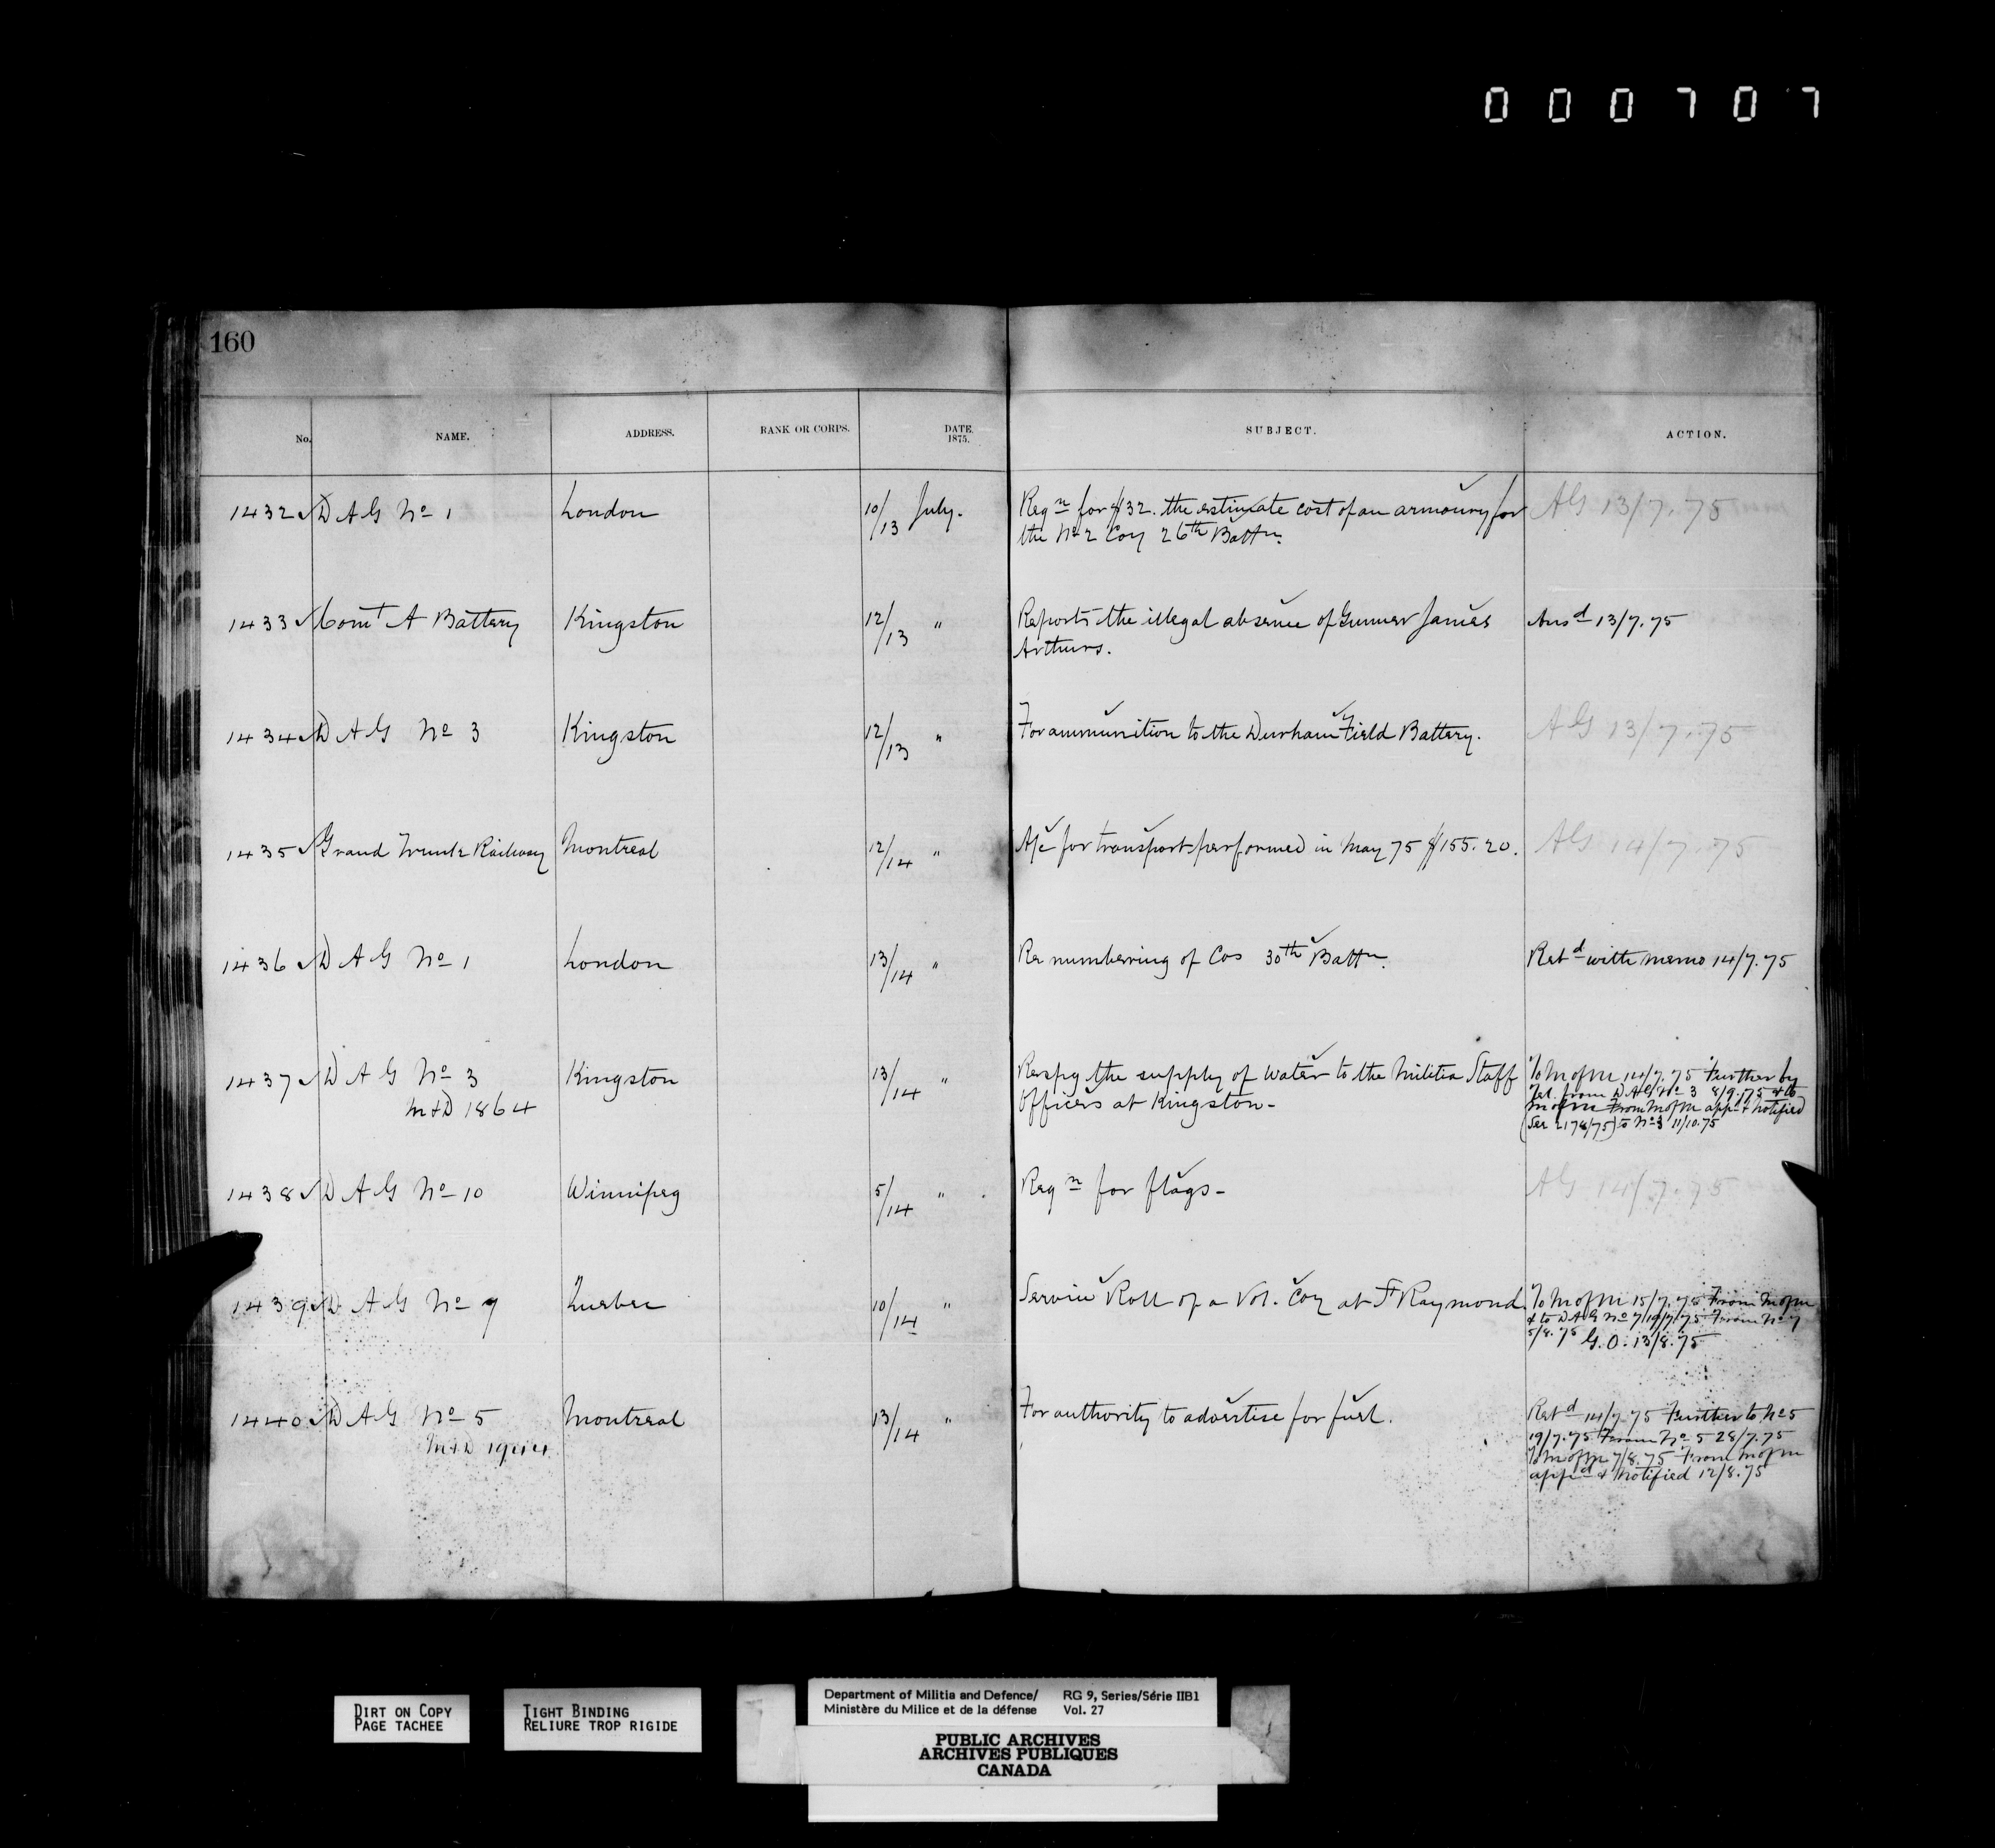 000707
160
No. NAME. ADDRESS. RANK OR CORPS. DATE. 1875. SUBJECT. ACTION.
1432 D A G No 1 London 10/13 July. Reqn for $32. the estimate cost of an armoury for AG 13/7.75
the No 2 Coy 26th Battn.
1433 Comt A Battery Kingston 12/13 " Reports the illegal absence of Gunner James Ansd 13/7.75
Arthurs.
1434 D A G No 3 Kingston 12/13 " For ammunition to the Durham Field Battery. AG 13/7.75
1435 Grand Trunk Railway Montreal 12/14 " A/c for transport performed in May 75 $155.20. AG 14/7.75
1436 D A G No 1 London 13/14 " Re numbering of Cos 30th Battn. Retd with memo 14/7.75
1437 D A G No 3 Kingston 13/14 " Respg the supply of water to the Militia Staff To M of M 14/7.75 Further by
M+D 1864 Officers at Kingston - Tel. from D A G No 3 8/9.75 + to
M of M From M of M appd + notified
(See 2178/75) to No 3 11/10.75
1438 D A G No 10 Winnipeg 5/14 " Reqn for flags - AG 14/7.75
1439 D A G No 7 Quebec 10/14 " Service Roll of a Vol. Coy at St Raymond. To M of M 15/7.75 From M of M
+ to D A G No 7 19/7.75 From No 7
5/8.75 G.O. 13/8.75
1440 D A G No 5 Montreal 13/14 " For authority to advertise for fuel. Retd 14/7.75 Further to No 5
M+D 19/7.75 From No 5 28/7.75
To M of M 7/8.75 From M of M
appd + notified 12/8.75
DIRT ON COPY
PAGE TACHEE
TIGHT BINDING
RELIURE TROP RIGIDE
Department of Militia and Defence/ RG 9, Series/Série IIB1
Ministère du Milice et de la défense Vol. 27
PUBLIC ARCHIVES
ARCHIVES PUBLIQUES
CANADA